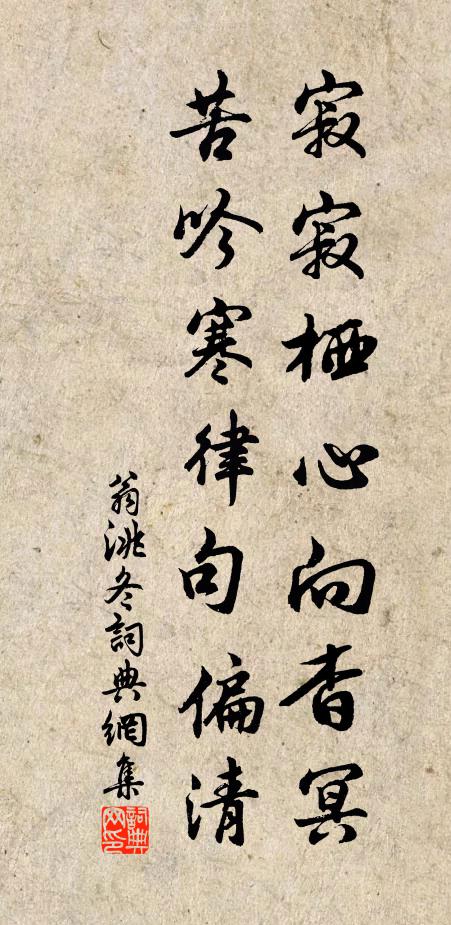 寂寂栖心向杳冥
苦吟寒律句偏清
翁洮冬詞典網集
詞典網印